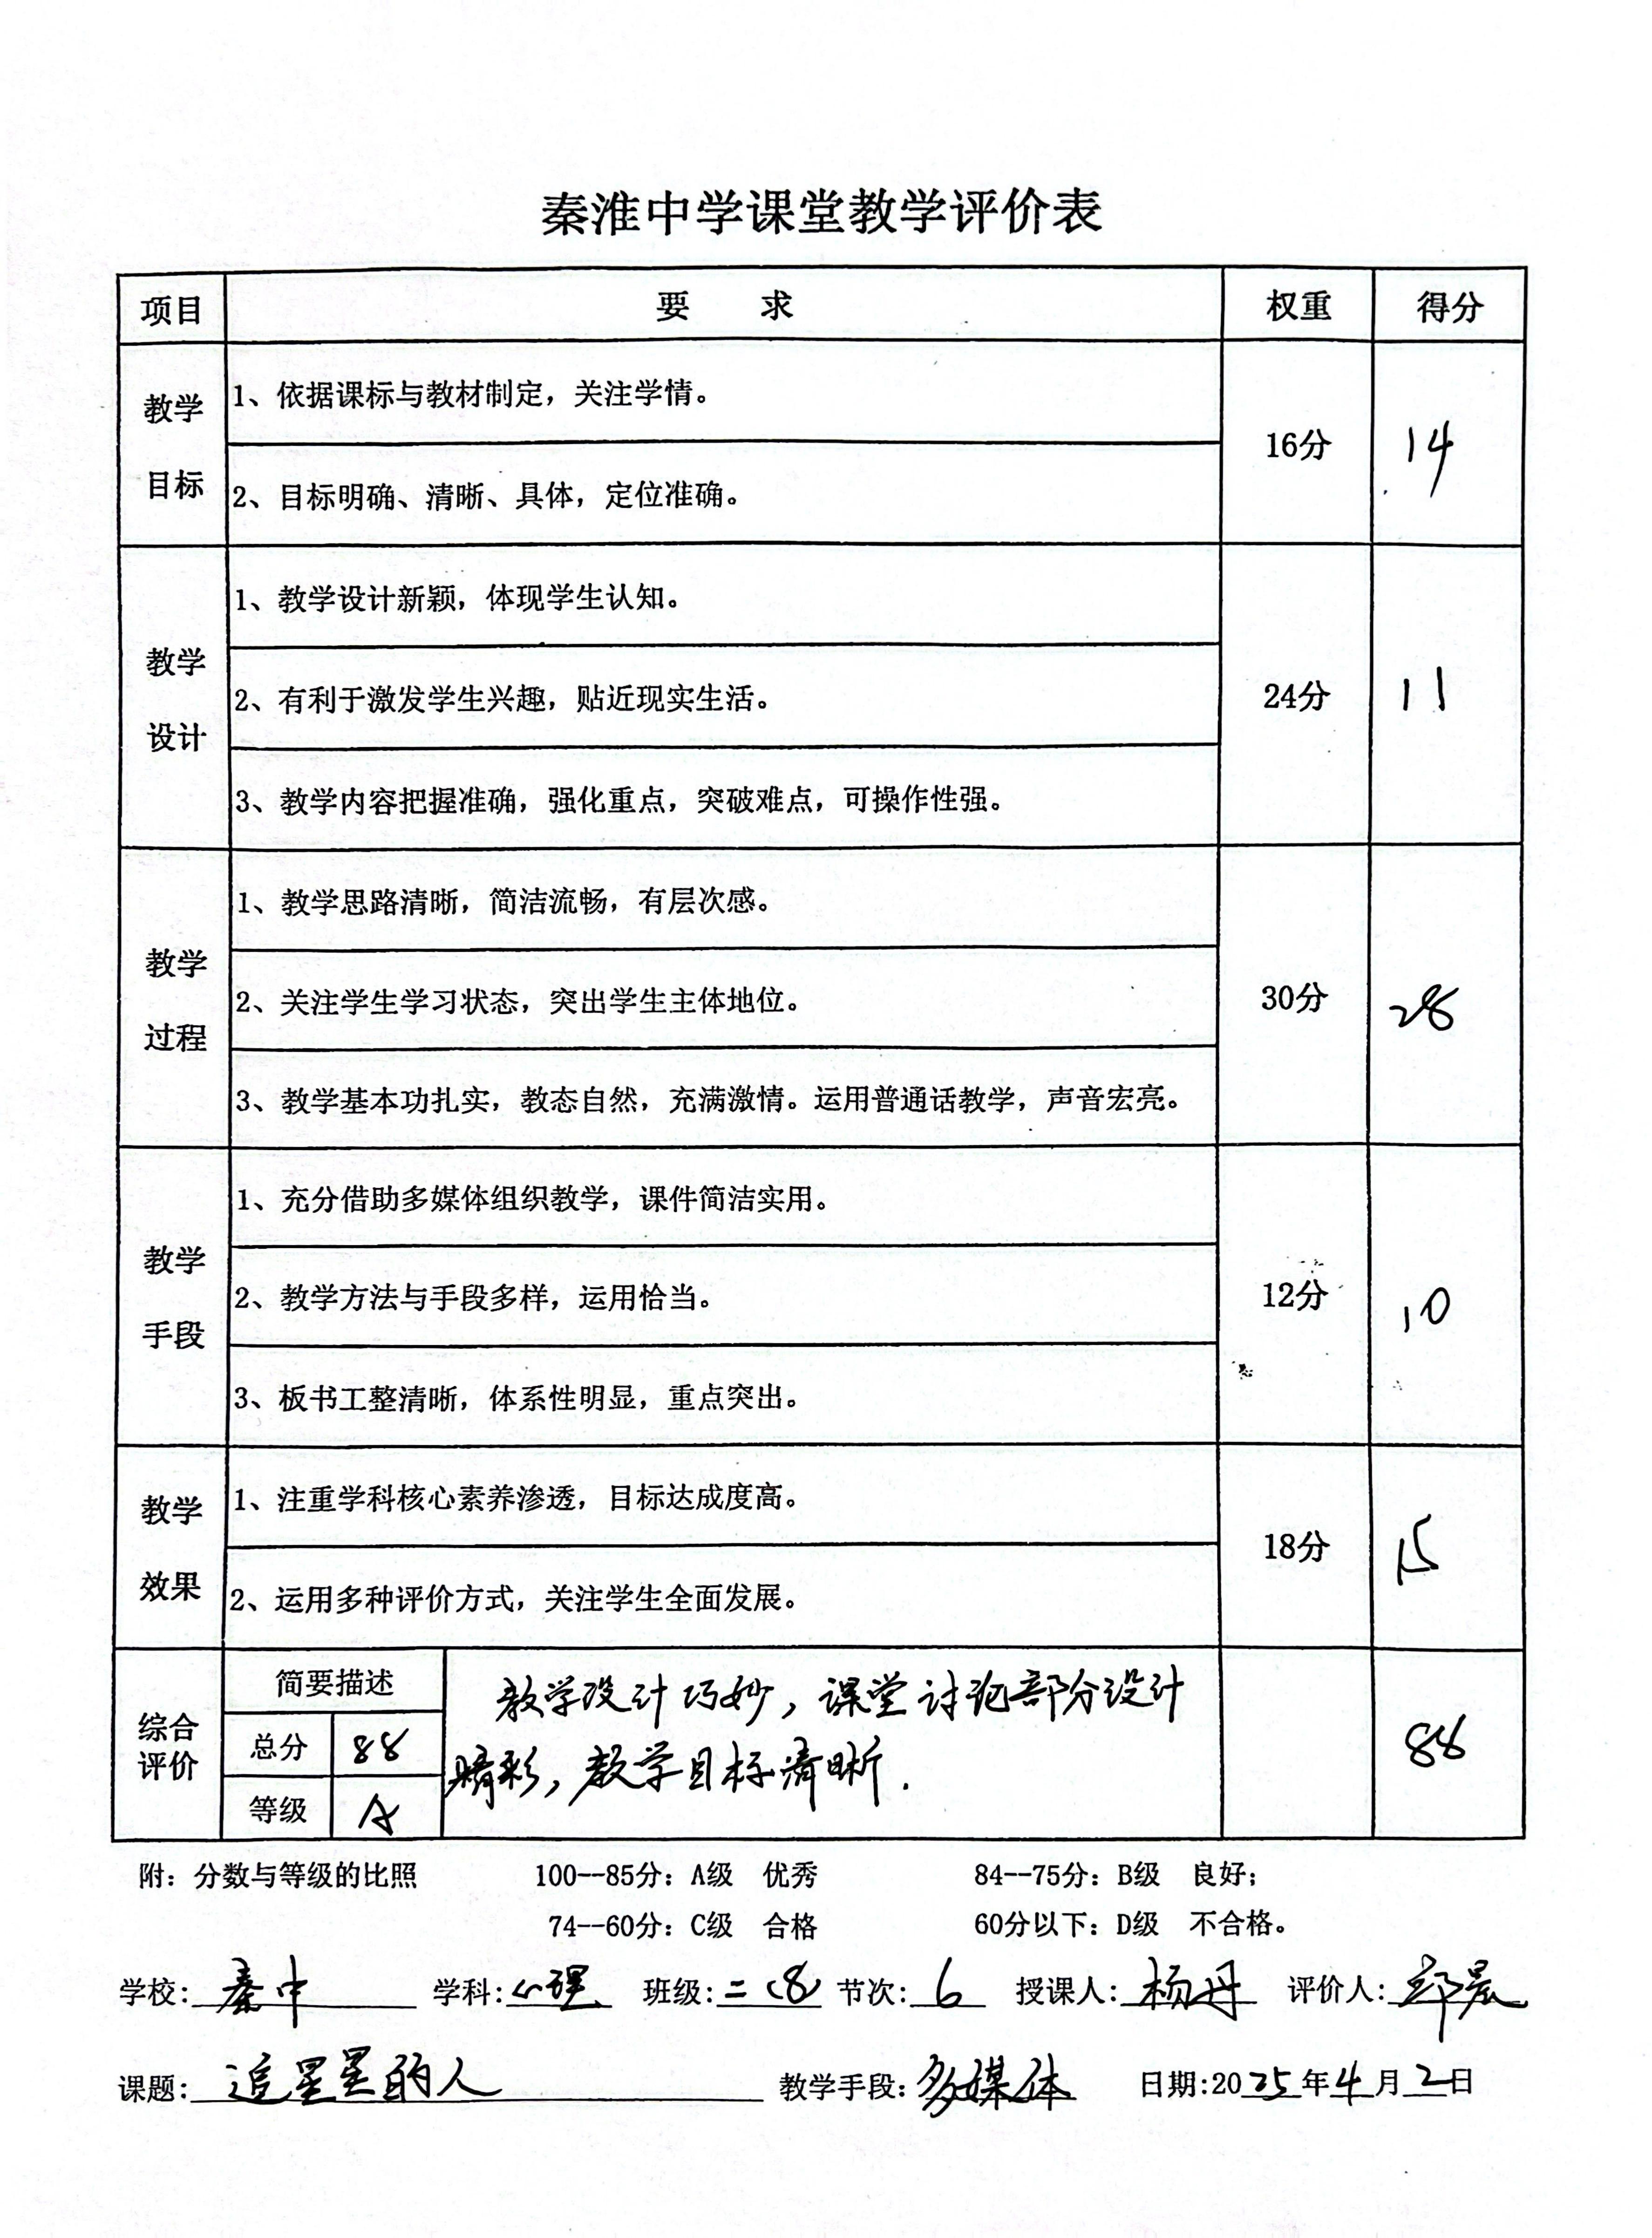 秦淮中学课堂教学评价表
项目 要 求 权重 得分
教学目标 1、依据课标与教材制定，关注学情。 16分 14
2、目标明确、清晰、具体，定位准确。
教学设计 1、教学设计新颖，体现学生认知。 24分 11
2、有利于激发学生兴趣，贴近现实生活。
3、教学内容把握准确，强化重点，突破难点，可操作性强。
教学过程 1、教学思路清晰，简洁流畅，有层次感。 30分 28
2、关注学生学习状态，突出学生主体地位。
3、教学基本功扎实，教态自然，充满激情。运用普通话教学，声音宏亮。
教学手段 1、充分借助多媒体组织教学，课件简洁实用。 12分 10
2、教学方法与手段多样，运用恰当。
3、板书工整清晰，体系性明显，重点突出。
教学效果 1、注重学科核心素养渗透，目标达成度高。 18分 15
2、运用多种评价方式，关注学生全面发展。
综合评价 简要描述 教学设计巧妙，课堂讨论部分设计
总分 88 精彩，教学目标清晰. 88
等级 A
附：分数与等级的比照 100--85分：A级 优秀 84--75分：B级 良好；
74--60分：C级 合格 60分以下：D级 不合格。
学校：秦中 学科：心理 班级：二(8) 节次：6 授课人：杨丹 评价人：邹晨
课题：追星星的人 教学手段：多媒体 日期:2025年4月2日